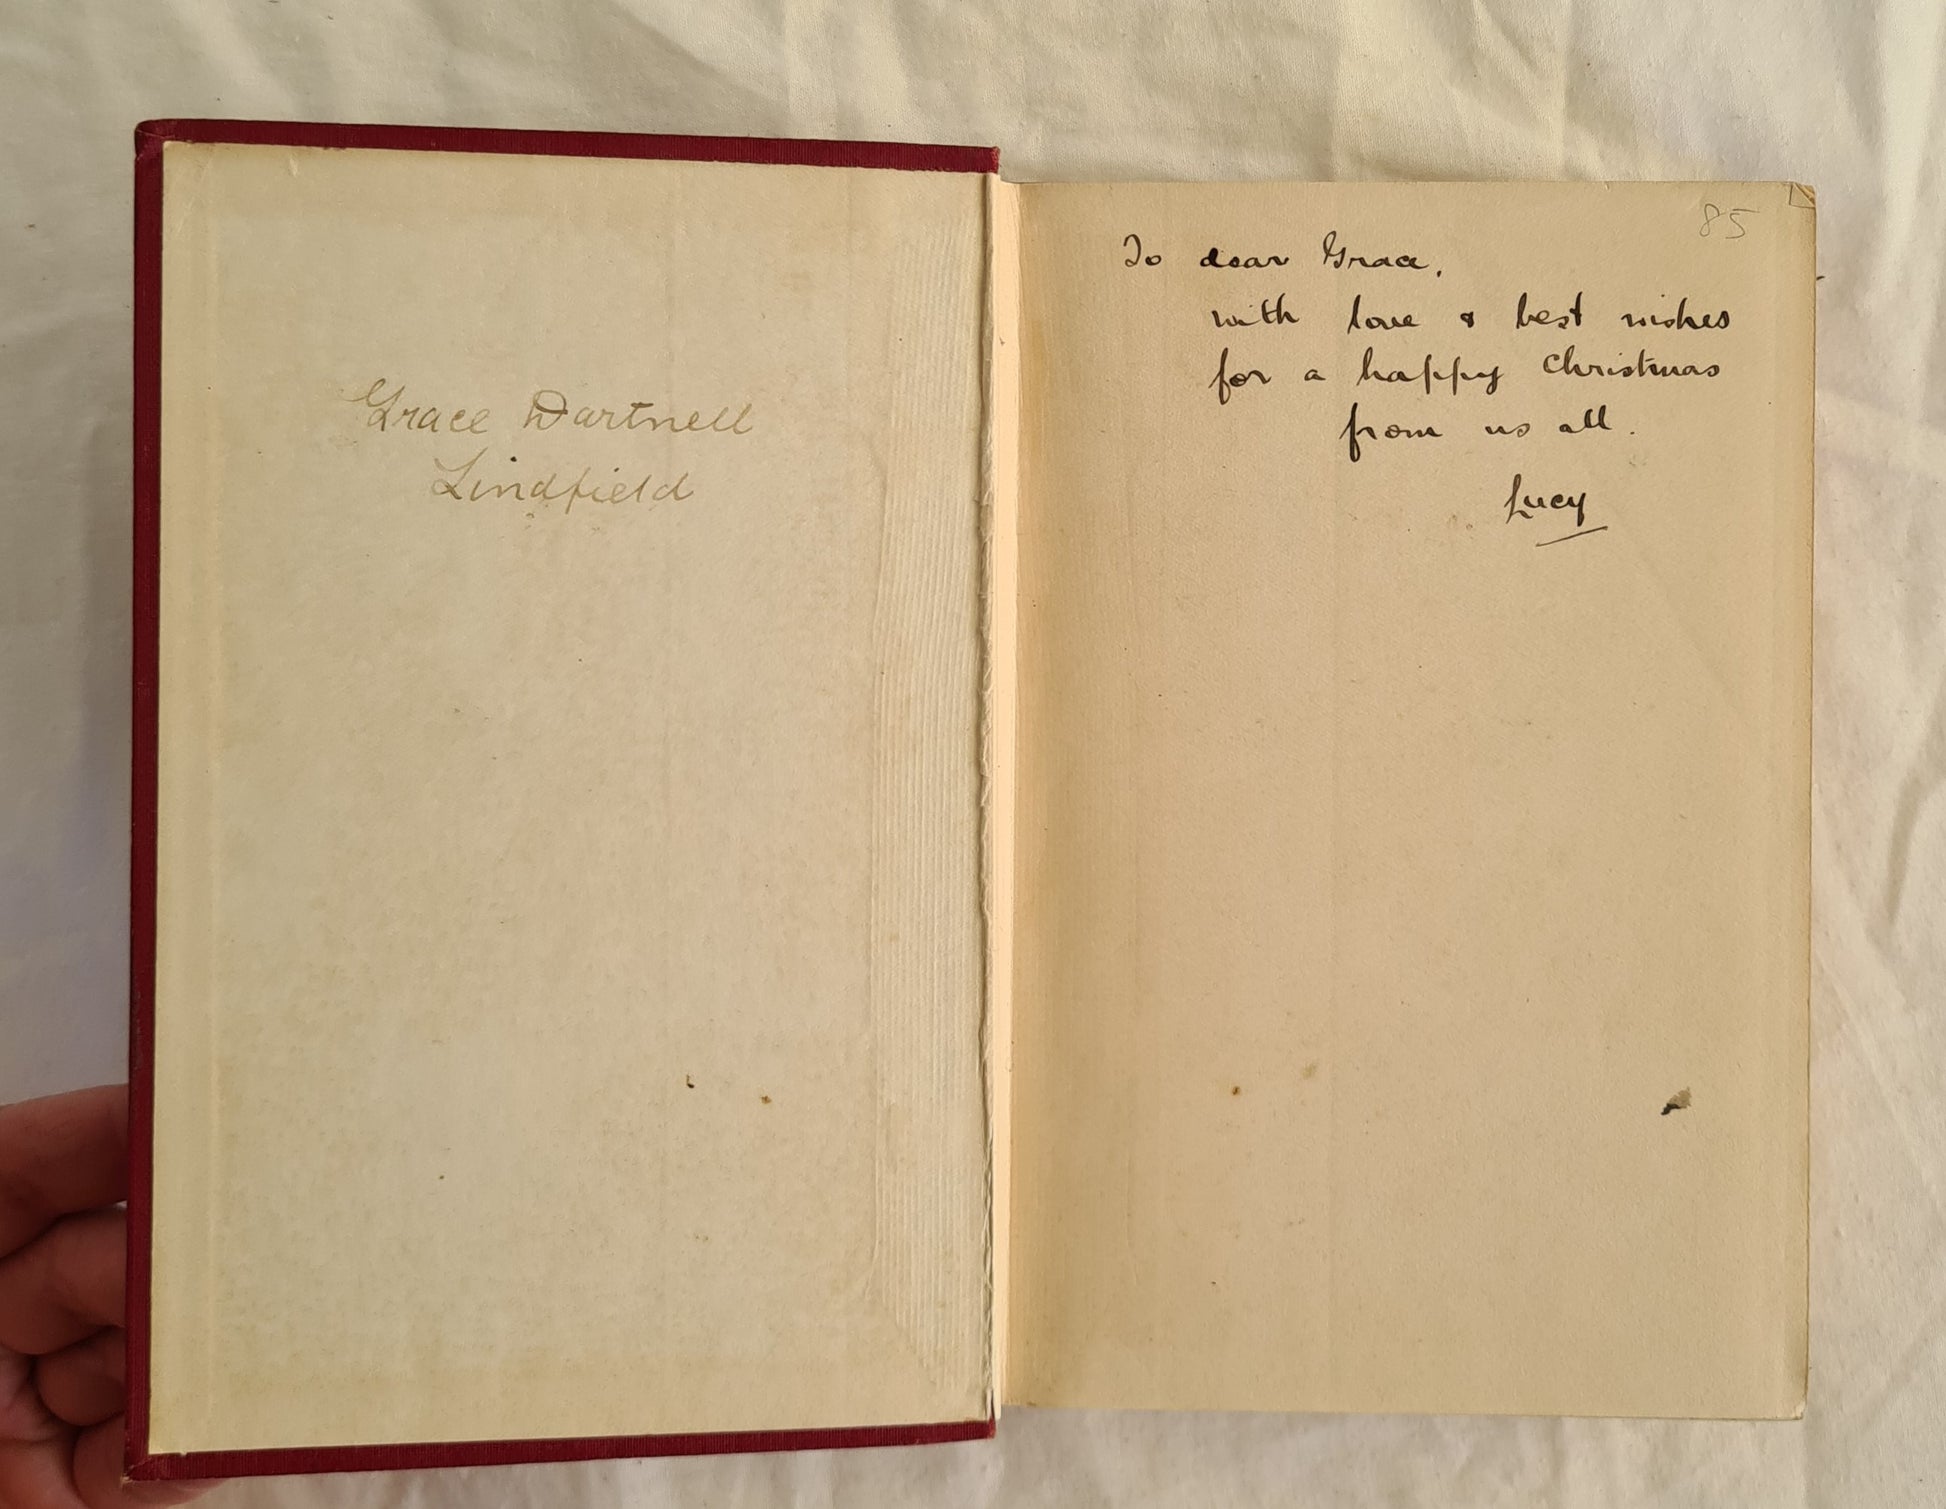 Grace Dartnell
Lindfield
85
To dear Grace,
with love & best wishes
for a happy Christmas
from us all.
Lucy